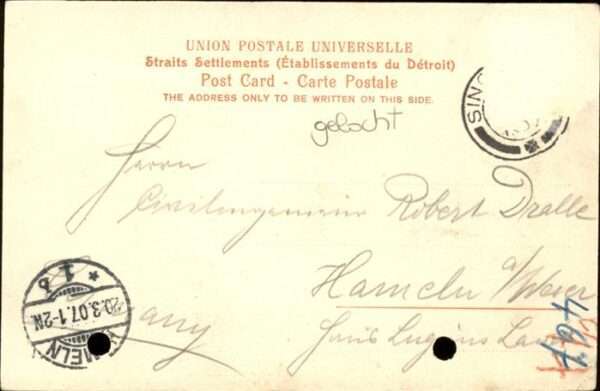 UNION POSTALE UNIVERSELLE
Straits Settlements (Établissements du Détroit)
Post Card - Carte Postale
THE ADDRESS ONLY TO BE WRITTEN ON THIS SIDE.
gelocht
SING
Herrn
Civilingenieur Robert Dralle
Hameln a/Weser
20.3.07.1-2N.
HAMELN